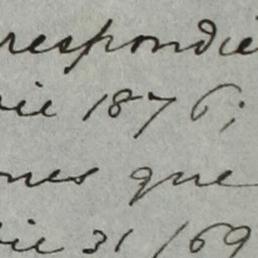 respondie
vie 1876;
nes que
vie 31/69